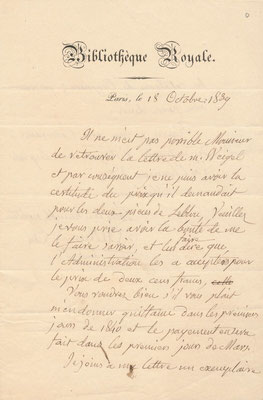 Bibliothèque Royale.
Paris, le 18 Octobre, 1839
Il ne m'est pas possible Monsieur
de retrouver la lettre de M. Weigel
et par conséquent je ne puis avoir la
certitude du prix qu'il demandait
pour les deux pièces de Veuillez
je vous prie avoir la bonté de me
le faire savoir, et lui dire que,
l'Administration les a acceptées pour
le prix de deux cens francs,
Vous voudrez bien s'il vous plait
m'en donner quittance dans les premiers
jours de 1840 et le payement en sera
fait dans les premiers jours de Mars.
Je joins à ma lettre un exemplaire